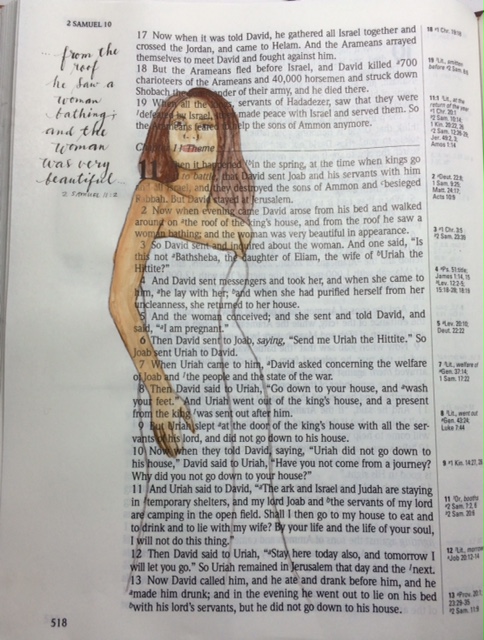 2 SAMUEL 10
... from the
roof
he saw a
woman
bathing;
and the
woman
was very
beautiful.
2 Samuel 11:2
17 Now when it was told David, he gathered all Israel together and
crossed the Jordan, and came to Helam. And the Arameans arrayed
themselves to meet David and fought against him.
18 But the Arameans fled before Israel, and David killed 700
charioteers of the Arameans and 40,000 horsemen and struck down
Shobach the commander of their army, and he died there.
19 When all the servants of Hadadezer, saw that they were
defeated by Israel, they made peace with Israel and served them. So
the Arameans feared to help the sons of Ammon anymore.
Theme
11 Then it happened in the spring, at the time when kings go
out to battle, that David sent Joab and his servants with him
and all Israel, and they destroyed the sons of Ammon and besieged
Rabbah. But David stayed at Jerusalem.
2 Now when evening came David arose from his bed and walked
around on the roof of the king's house, and from the roof he saw a
woman bathing; and the woman was very beautiful in appearance.
3 So David sent and inquired about the woman. And one said, "Is
this not Bathsheba, the daughter of Eliam, the wife of Uriah the
Hittite?"
4 And David sent messengers and took her, and when she came to
him, he lay with her; and when she had purified herself from her
uncleanness, she returned to her house.
5 And the woman conceived; and she sent and told David, and
said, "I am pregnant."
6 Then David sent to Joab, saying, "Send me Uriah the Hittite." So
Joab sent Uriah to David.
7 When Uriah came to him, David asked concerning the welfare
of Joab and the people and the state of the war.
8 Then David said to Uriah, "Go down to your house, and wash
your feet." And Uriah went out of the king's house, and a present
from the king was sent out after him.
9 But Uriah slept at the door of the king's house with all the ser-
vants of his lord, and did not go down to his house.
10 Now when they told David, saying, "Uriah did not go down to
his house," David said to Uriah, "Have you not come from a journey?
Why did you not go down to your house?"
11 And Uriah said to David, "The ark and Israel and Judah are staying
in temporary shelters, and my lord Joab and the servants of my lord
are camping in the open field. Shall I then go to my house to eat and
to drink and to lie with my wife? By your life and the life of your soul,
I will not do this thing."
12 Then David said to Uriah, "Stay here today also, and tomorrow I
will let you go." So Uriah remained in Jerusalem that day and the next.
13 Now David called him, and he ate and drank before him, and he
made him drunk; and in the evening he went out to lie on his bed
with his lord's servants, but he did not go down to his house.
518